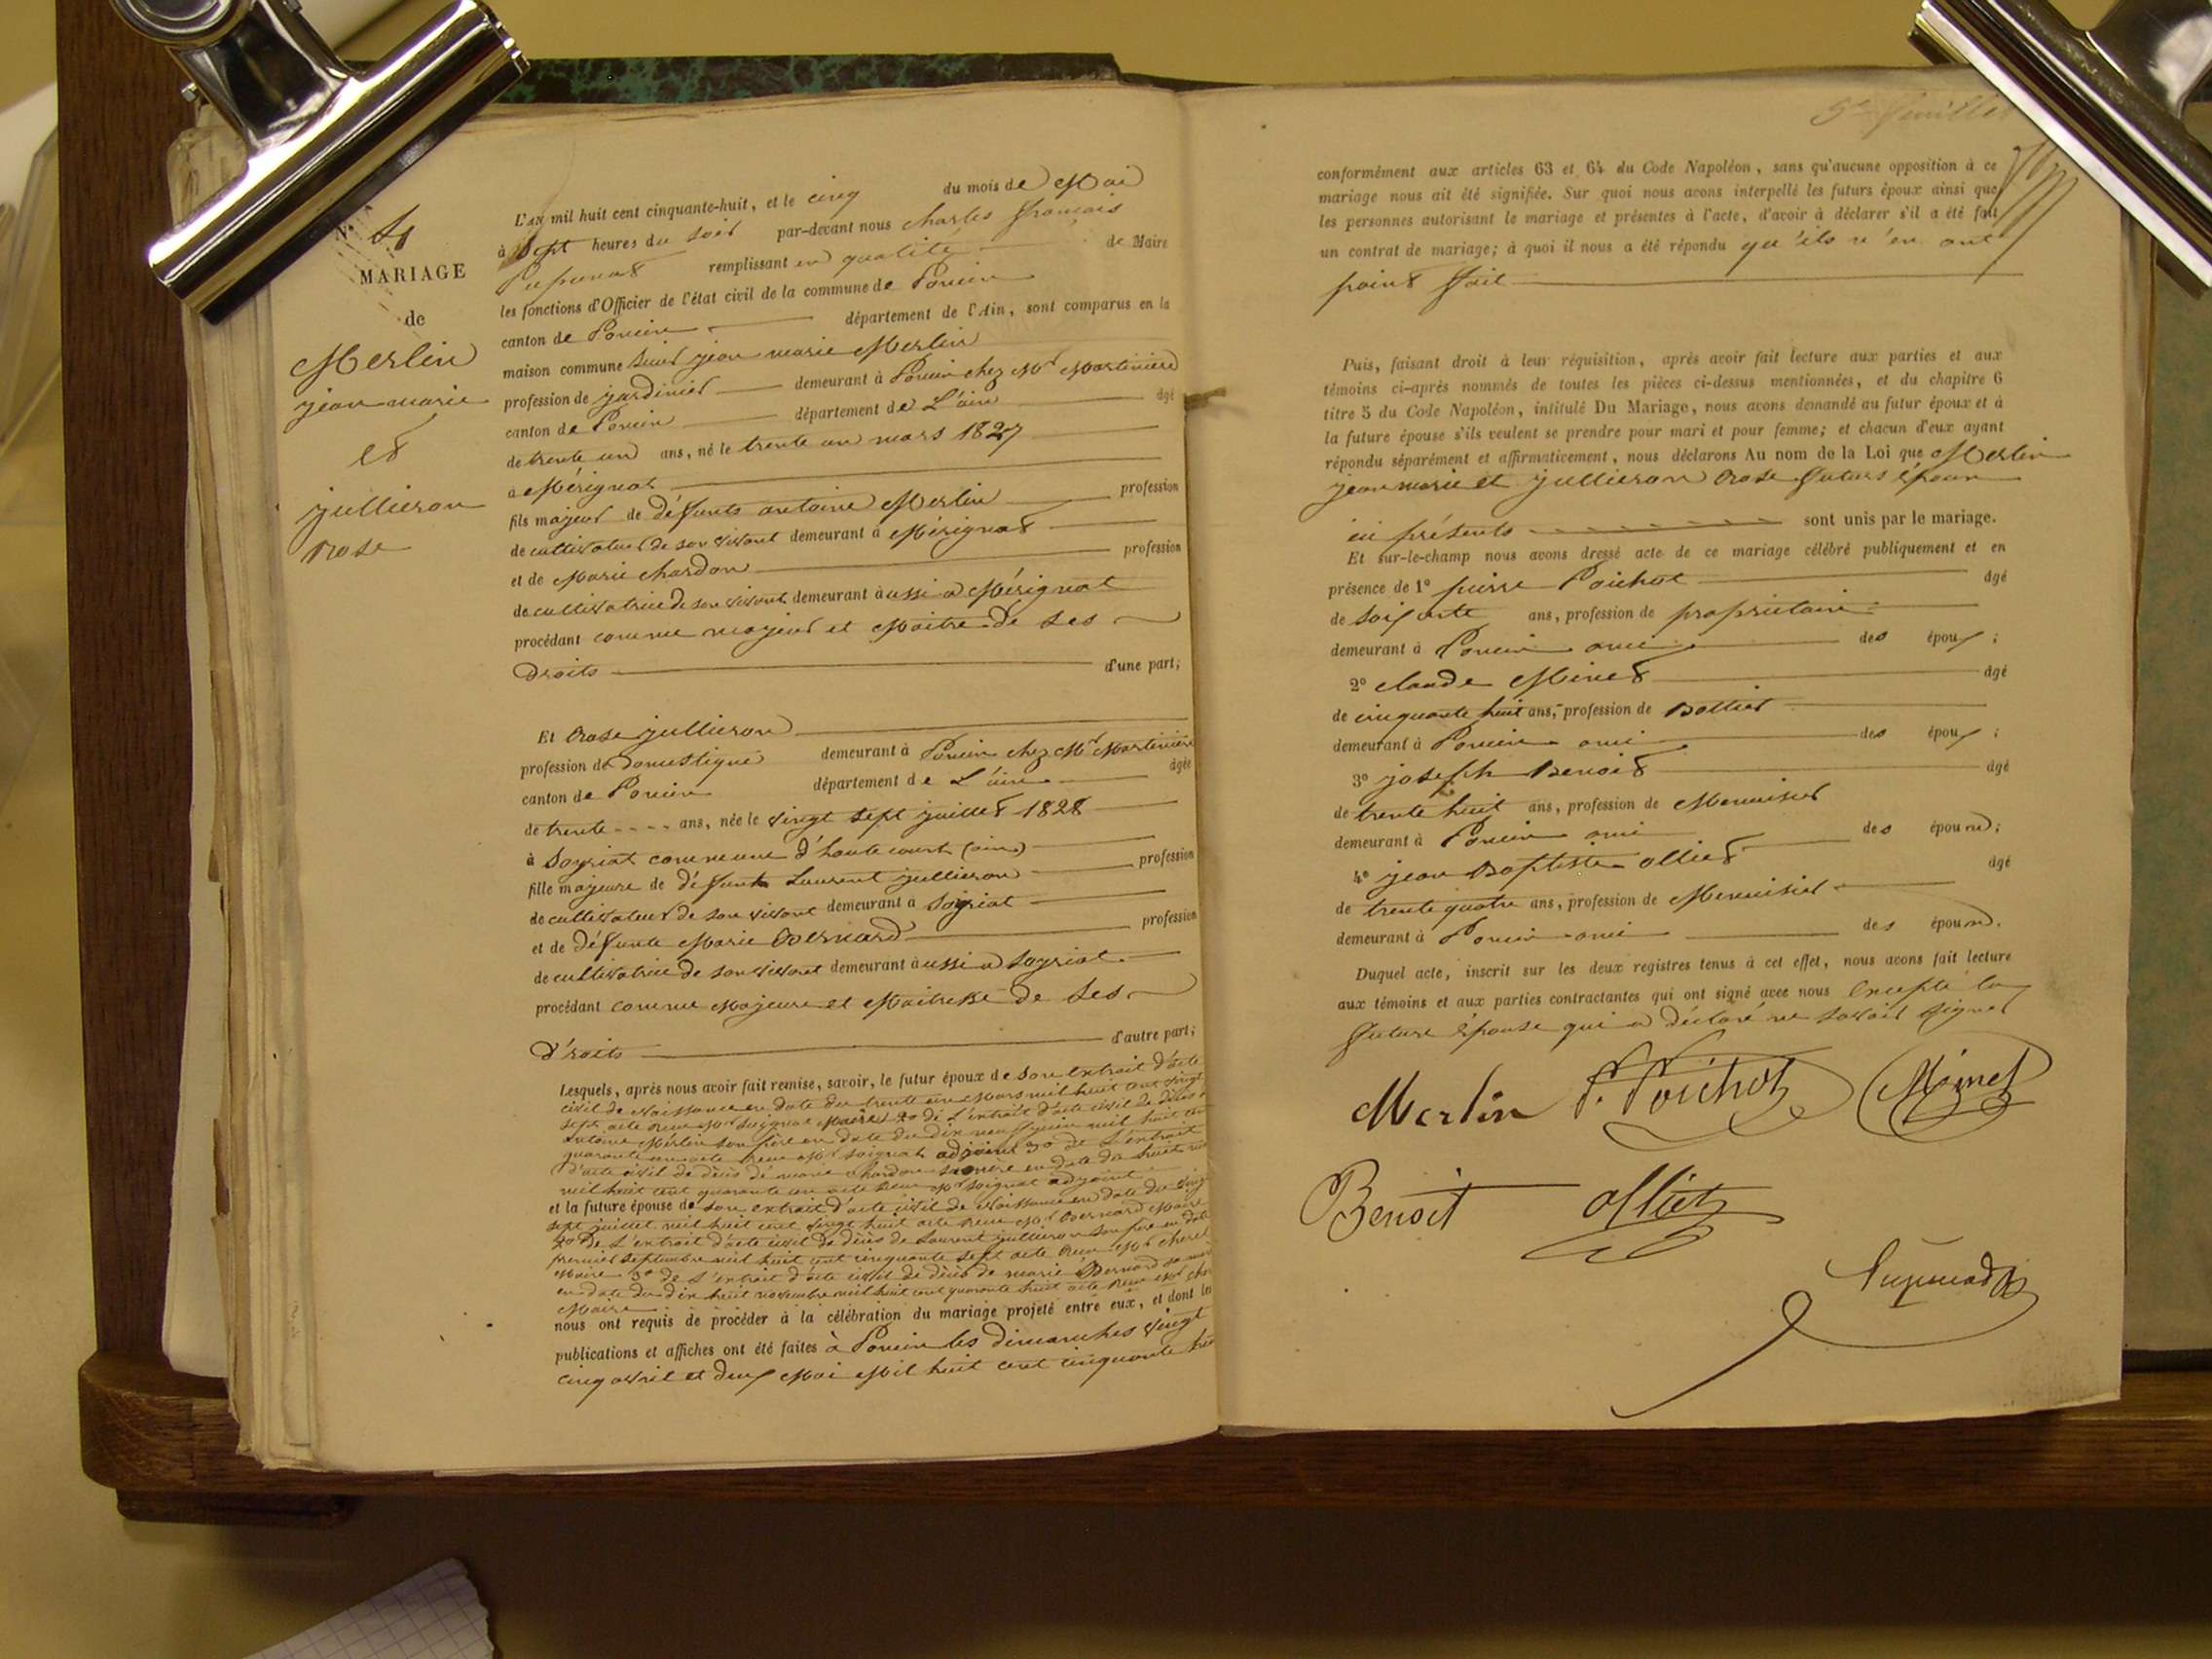 N° 4
MARIAGE
de
Merlin
jean marie
et
jullieron
rose
L'an mil huit cent cinquante-huit, et le cinq du mois de Mai
à Sept heures du soir par-devant nous charles françois
remplissant en qualité de Maire
les fonctions d'Officier de l'état civil de la commune de Poncin
canton de Poncin département de l'Ain, sont comparus en la
maison commune sieur jean marie Merlin
profession de jardinier demeurant à Poncin chez Mr Martinière
canton de Poncin département de L'ain âgé
de trente un ans, né le trente un mars 1827
à Mérignat
fils majeur de défunts antoine Merlin profession
de cultivateur de son vivant demeurant à Mérignat
et de Marie chardon profession
de cultivatrice de son vivant demeurant à aussi a Mérignat
procédant comme majeur et Maître de ses
droits d'une part;
Et Rose jullieron
profession de domestique demeurant à Poncin chez Mr Martinière
canton de Poncin département de L'ain âgée
de trente ans, née le vingt sept juillet 1828
à Soyriat commune d'hautecourt (ain)
fille majeure de défunt Laurent jullieron profession
de cultivateur de son vivant demeurant à Soyriat
et de défunte Marie Bernard profession
de cultivatrice de son vivant demeurant à aussi a Soyriat
procédant comme Majeure et Maitresse de ses
droits d'autre part;
Lesquels, après nous avoir fait remise, savoir, le futur époux de son extrait d'acte
civil de Naissance en date du trente un Mars mil huit cent vingt
sept acte reçu Mr Maire 2° de L'extrait d'acte civil de décès
antoine Merlin son père en date du dix neuf mil huit cent
quarante un acte reçu Mr Soignat adjoint 3° de L'extrait
d'acte civil de décès de marie chardon sa mère en date du huit
mil huit cent quarante un acte reçu Mr Soignat adjoint
et la future épouse de son extrait d'acte civil de Naissance en date du vingt
sept juillet mil huit cent vingt huit acte reçu Mr Bernard Maire
2° de L'extrait d'acte civil de décès de Laurent jullieron son père en date
premier septembre mil huit cent cinquante sept acte reçu Mr
Maire 3° de L'extrait d'acte civil de décès de marie Bernard sa mère
en date du dix huit novembre mil huit cent quarante huit acte reçu Mr
Maire
nous ont requis de procéder à la célébration du mariage projeté entre eux, et dont les
publications et affiches ont été faites à Poncin les dimanches vingt
cinq avril et deux Mai Mil huit cent cinquante huit
5e feuillet
conformément aux articles 63 et 64 du Code Napoléon, sans qu'aucune opposition à ce
mariage nous ait été signifiée. Sur quoi nous avons interpellé les futurs époux ainsi que
les personnes autorisant le mariage et présentes à l'acte, d'avoir à déclarer s'il a été fait
un contrat de mariage; à quoi il nous a été répondu qu'ils n'en ont
point fait
Puis, faisant droit à leur réquisition, après avoir fait lecture aux parties et aux
témoins ci-après nommés de toutes les pièces ci-dessus mentionnées, et du chapitre 6
titre 5 du Code Napoléon, intitulé Du Mariage, nous avons demandé au futur époux et à
la future épouse s'ils veulent se prendre pour mari et pour femme; et chacun d'eux ayant
répondu séparément et affirmativement, nous déclarons Au nom de la Loi que Merlin
jean marie et jullieron Rose futurs époux
ici présents sont unis par le mariage.
Et sur-le-champ nous avons dressé acte de ce mariage célébré publiquement et en
présence de 1° pierre Poichot âgé
de soixante ans, profession de propriétaire
demeurant à Poncin ami des époux;
2° claude Minet âgé
de cinquante huit ans, profession de Bottier
demeurant à Poncin ami des époux;
3° joseph Benoit âgé
de trente huit ans, profession de Menuisier
demeurant à Poncin ami des époux;
4° jean Baptiste olliet âgé
de trente quatre ans, profession de Menuisier
demeurant à Poncin ami des époux.
Duquel acte, inscrit sur les deux registres tenus à cet effet, nous avons fait lecture
aux témoins et aux parties contractantes qui ont signé avec nous excepté la
future épouse qui a déclaré ne savoir signer
Merlin P. Poichot Minet
Benoit olliet